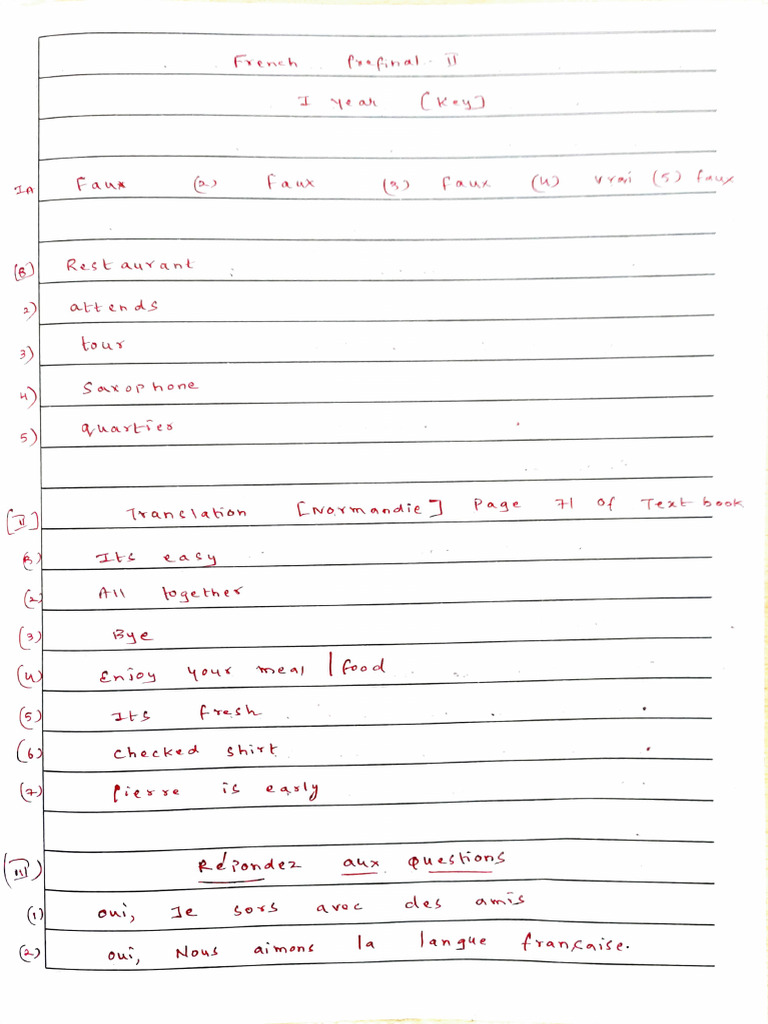 French Prefinal - II
I year [Key]
IA Faux (2) Faux (3) Faux (4) Vrai (5) faux
(B) Restaurant
2) attends
3) tour
4) Saxophone
5) quartier
[II] Translation [Normandie] Page 71 of Text book
B) Its easy
(2) All together
(3) Bye
(4) Enjoy your meal / food
(5) Its fresh
(6) checked shirt
(7) Pierre is early
(III) Répondez aux questions
(1) oui, Je sors avec des amis
(2) oui, Nous aimons la langue française.